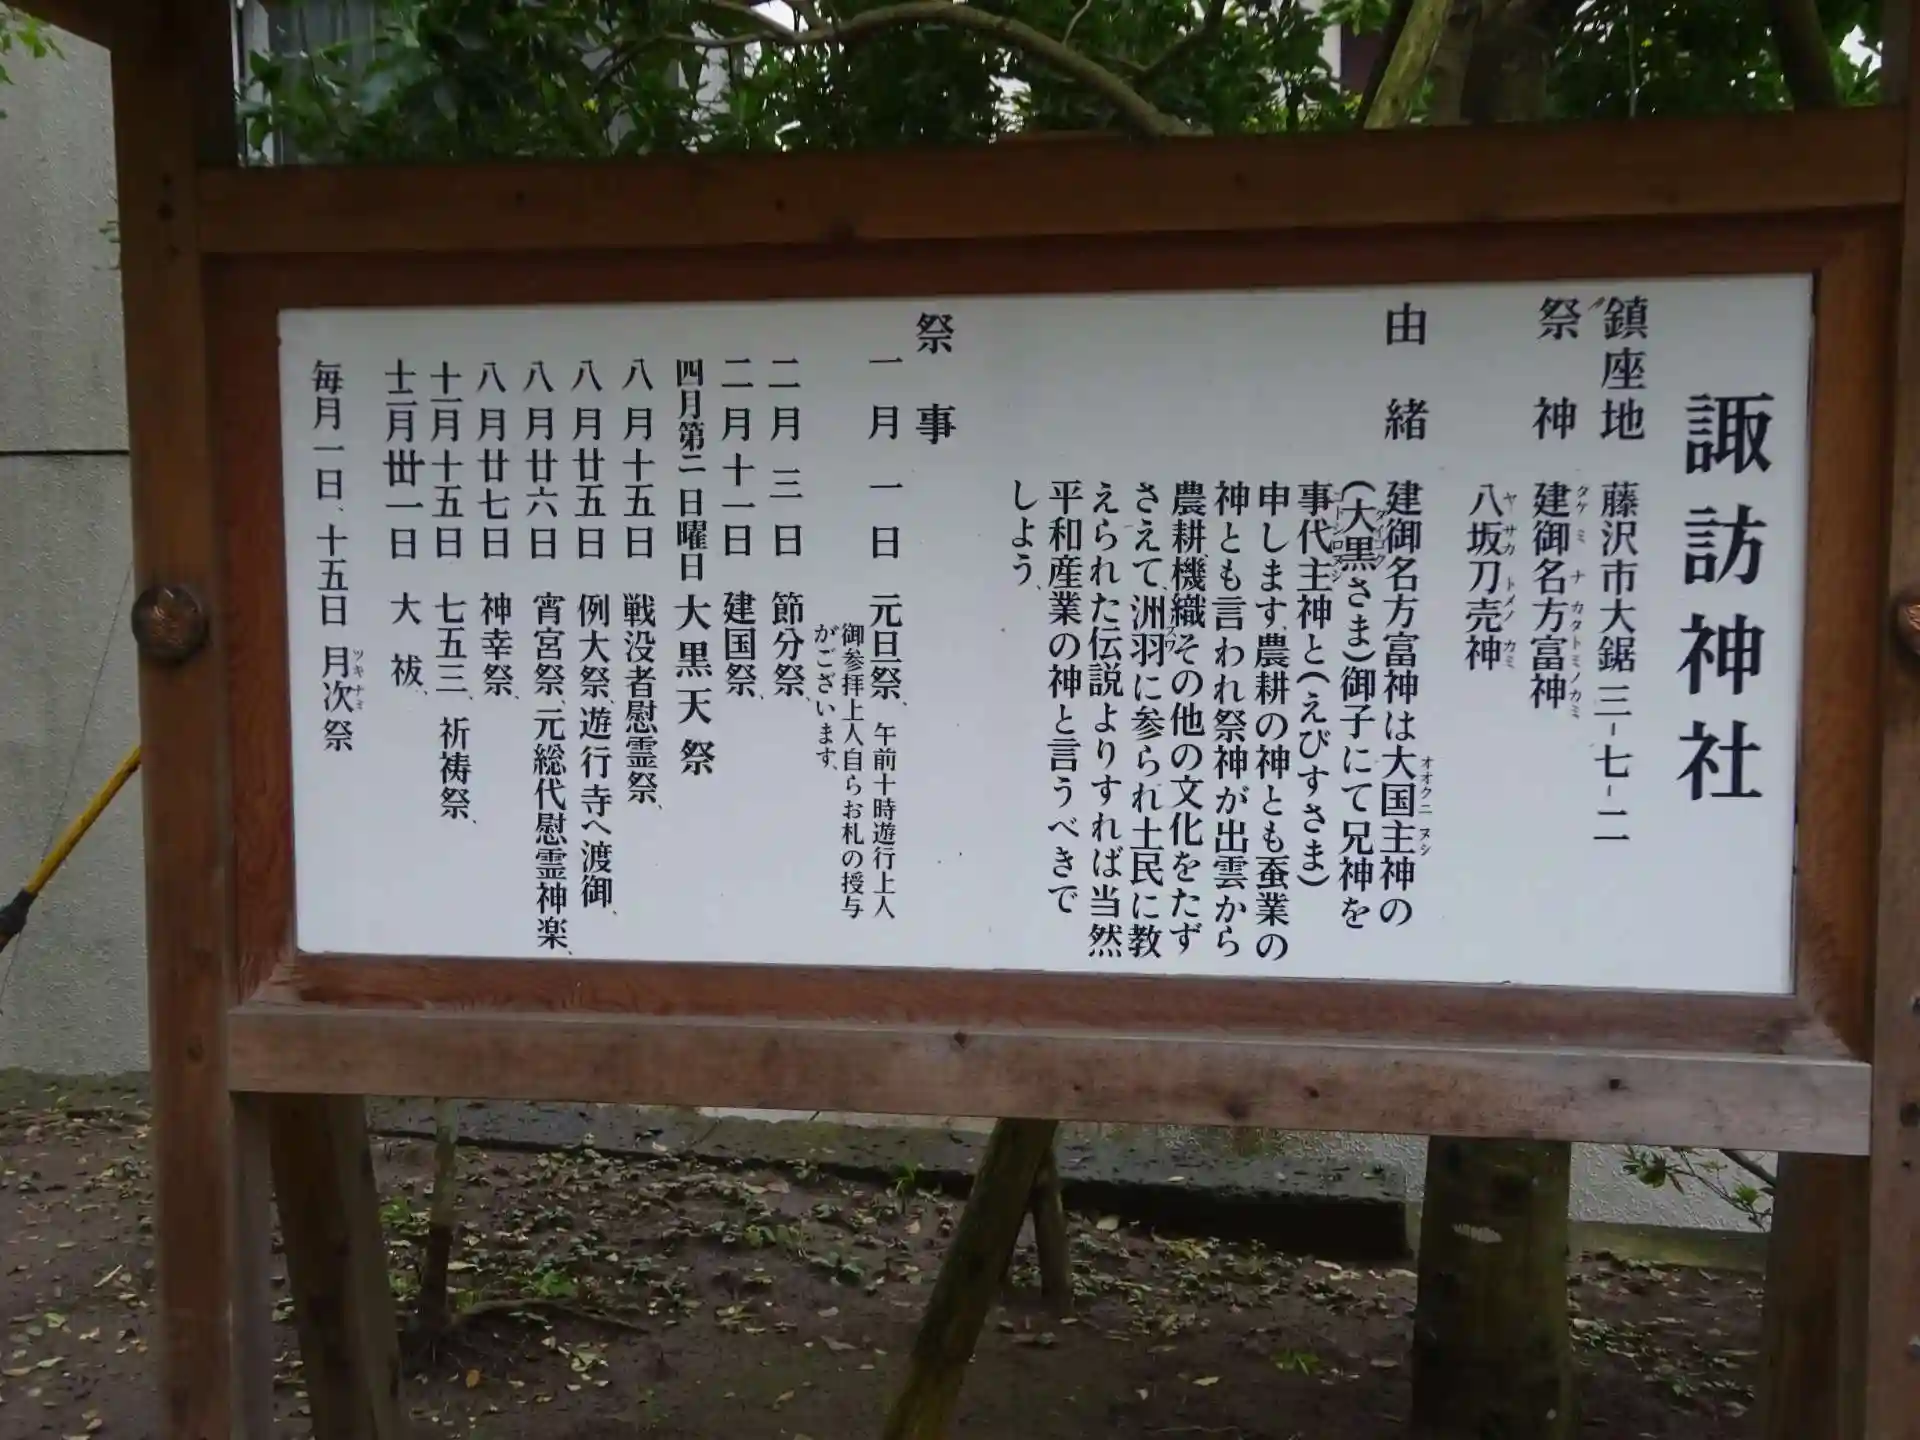 諏訪神社
鎮座地 藤沢市大鋸三-七-二
祭神 建御名方富神
タケミナカタトミノカミ
八坂刀売神
ヤサカトメノカミ
由緒 建御名方富神は大国主神の
オオクニヌシ
(大黒さま)御子にて兄神を
ダイコク
事代主神と(えびすさま)
コトシロヌシ
申します、農耕の神とも蚕業の
神とも言われ祭神が出雲から
農耕、機織その他の文化をたず
さえて、洲羽に参られ土民に教
スワ
えられた伝説よりすれば当然
平和産業の神と言うべきで
しよう、
祭事
一月一日 元旦祭、午前十時遊行上人
御参拝上人自らお札の授与
がございます、
二月三日 節分祭、
二月十一日 建国祭、
四月第二日曜日 大黒天祭
八月十五日 戦没者慰霊祭、
八月廿五日 例大祭、遊行寺へ渡御、
八月廿六日 宵宮祭、元総代慰霊神楽、
八月廿七日 神幸祭、
十一月十五日 七五三、祈祷祭、
十二月卅一日 大祓、
毎月一日、十五日 月次祭
ツキナミ